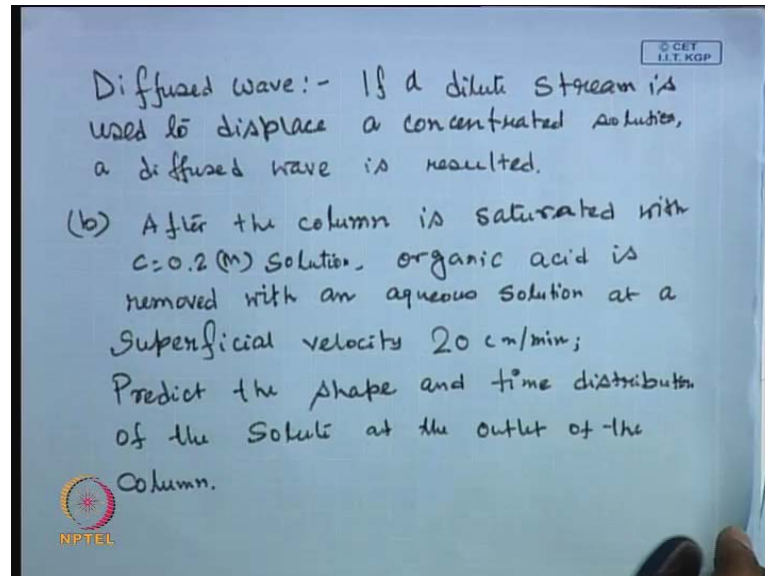 © CET
I.I.T. KGP
Diffused wave:- If a dilute stream is
used to displace a concentrated solution,
a diffused wave is resulted.
(b) After the column is saturated with
C=0.2 (M) solution, organic acid is
removed with an aqueous solution at a
superficial velocity 20 cm/min;
Predict the shape and time distribution
of the Solute at the outlet of the
Column.
NPTEL